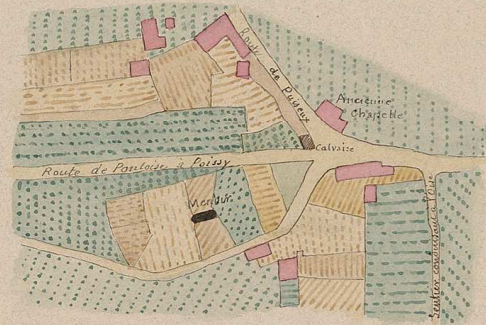 Route
de Puyeux
Ancienne
Chapelle
Calvaire
Route de Pontoise à Poissy
Menhir
Sentier conduisant à l'Oise